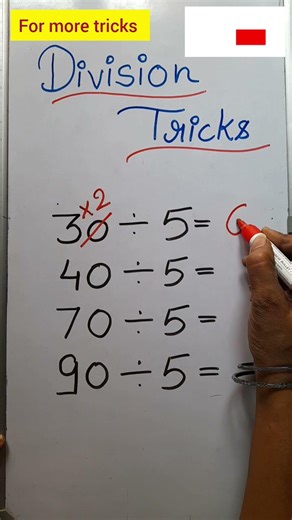 For more tricks
Division
Tricks
×2
30 ÷ 5 = 6
40 ÷ 5 =
70 ÷ 5 =
90 ÷ 5 =